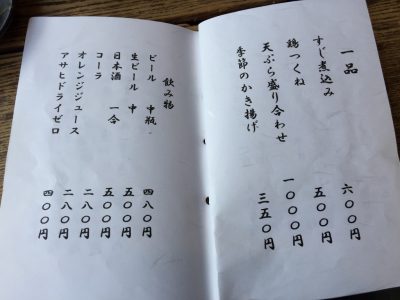 一品
すじ煮込み 六〇〇円
鶏つくね 五〇〇円
天ぷら盛り合わせ 一〇〇〇円
季節のかき揚げ 三五〇円
飲み物
ビール 中瓶 四八〇円
生ビール 中 五〇〇円
日本酒 一合 五〇〇円
コーラ 二八〇円
オレンジジュース 二八〇円
アサヒドライゼロ 四〇〇円